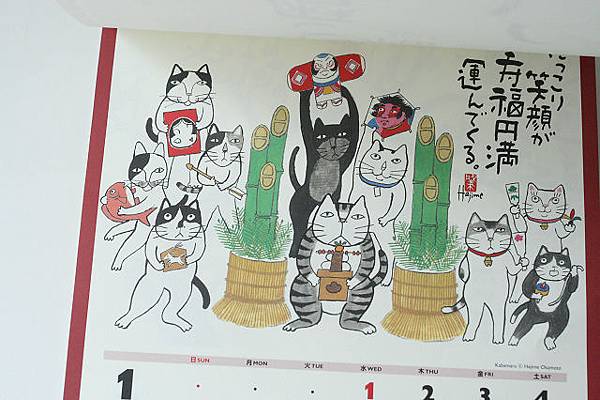 にっこり
笑顔が
寿福円満
運んでくる。
Hajime
Kabamaru © Hajime Okamoto
日SUN 月MON 火TUE 水WED 木THU 金FRI 土SAT
1 1 2 3 4